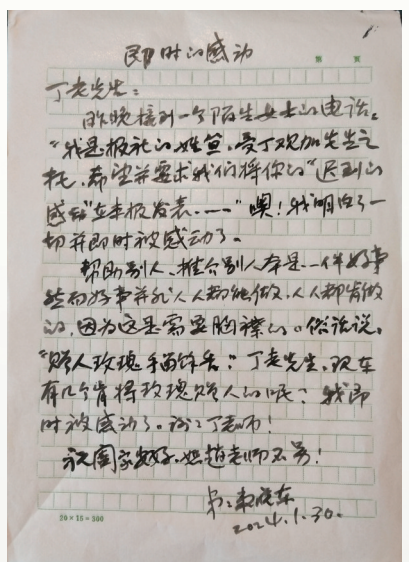 即时的感动
第 页
丁老先生：
昨晚接到一个陌生女士的电话。
“我是报社的，姓宣，受丁观加先生之
托，希望并要求我们将你的“迟到的
感动”在本报发表。……”噢！我明白了一
切并即时被感动了。
帮助别人、推介别人本是一件好事
然而好事并非人人都能做，人人都肯做
的，因为这是需要胸襟的。俗话说，
“赠人玫瑰手留余香”？丁老先生，现在
有几个肯将玫瑰赠人的呢？我即
时被感动了。谢谢丁老师！
祝阖家安好，赵老师不另！
弟：
2024.1.30.
20×15=300